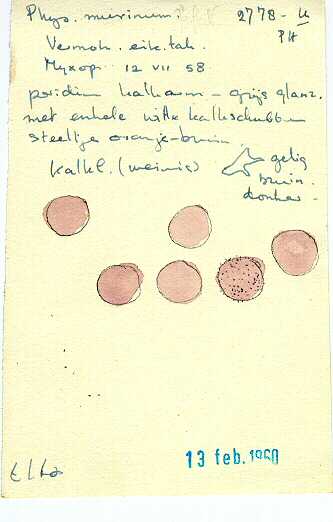 Phys. murinum. 2778-u
PH
Vermoh. eik. tak.
Myxop. 12 VII 58
peridium kalkarm - grijs glanz.
met enkele witte kalkschubben
steeltje oranje-bruin
kalkl. (weinig) gelig
bruin.
donker -
13 feb. 1960